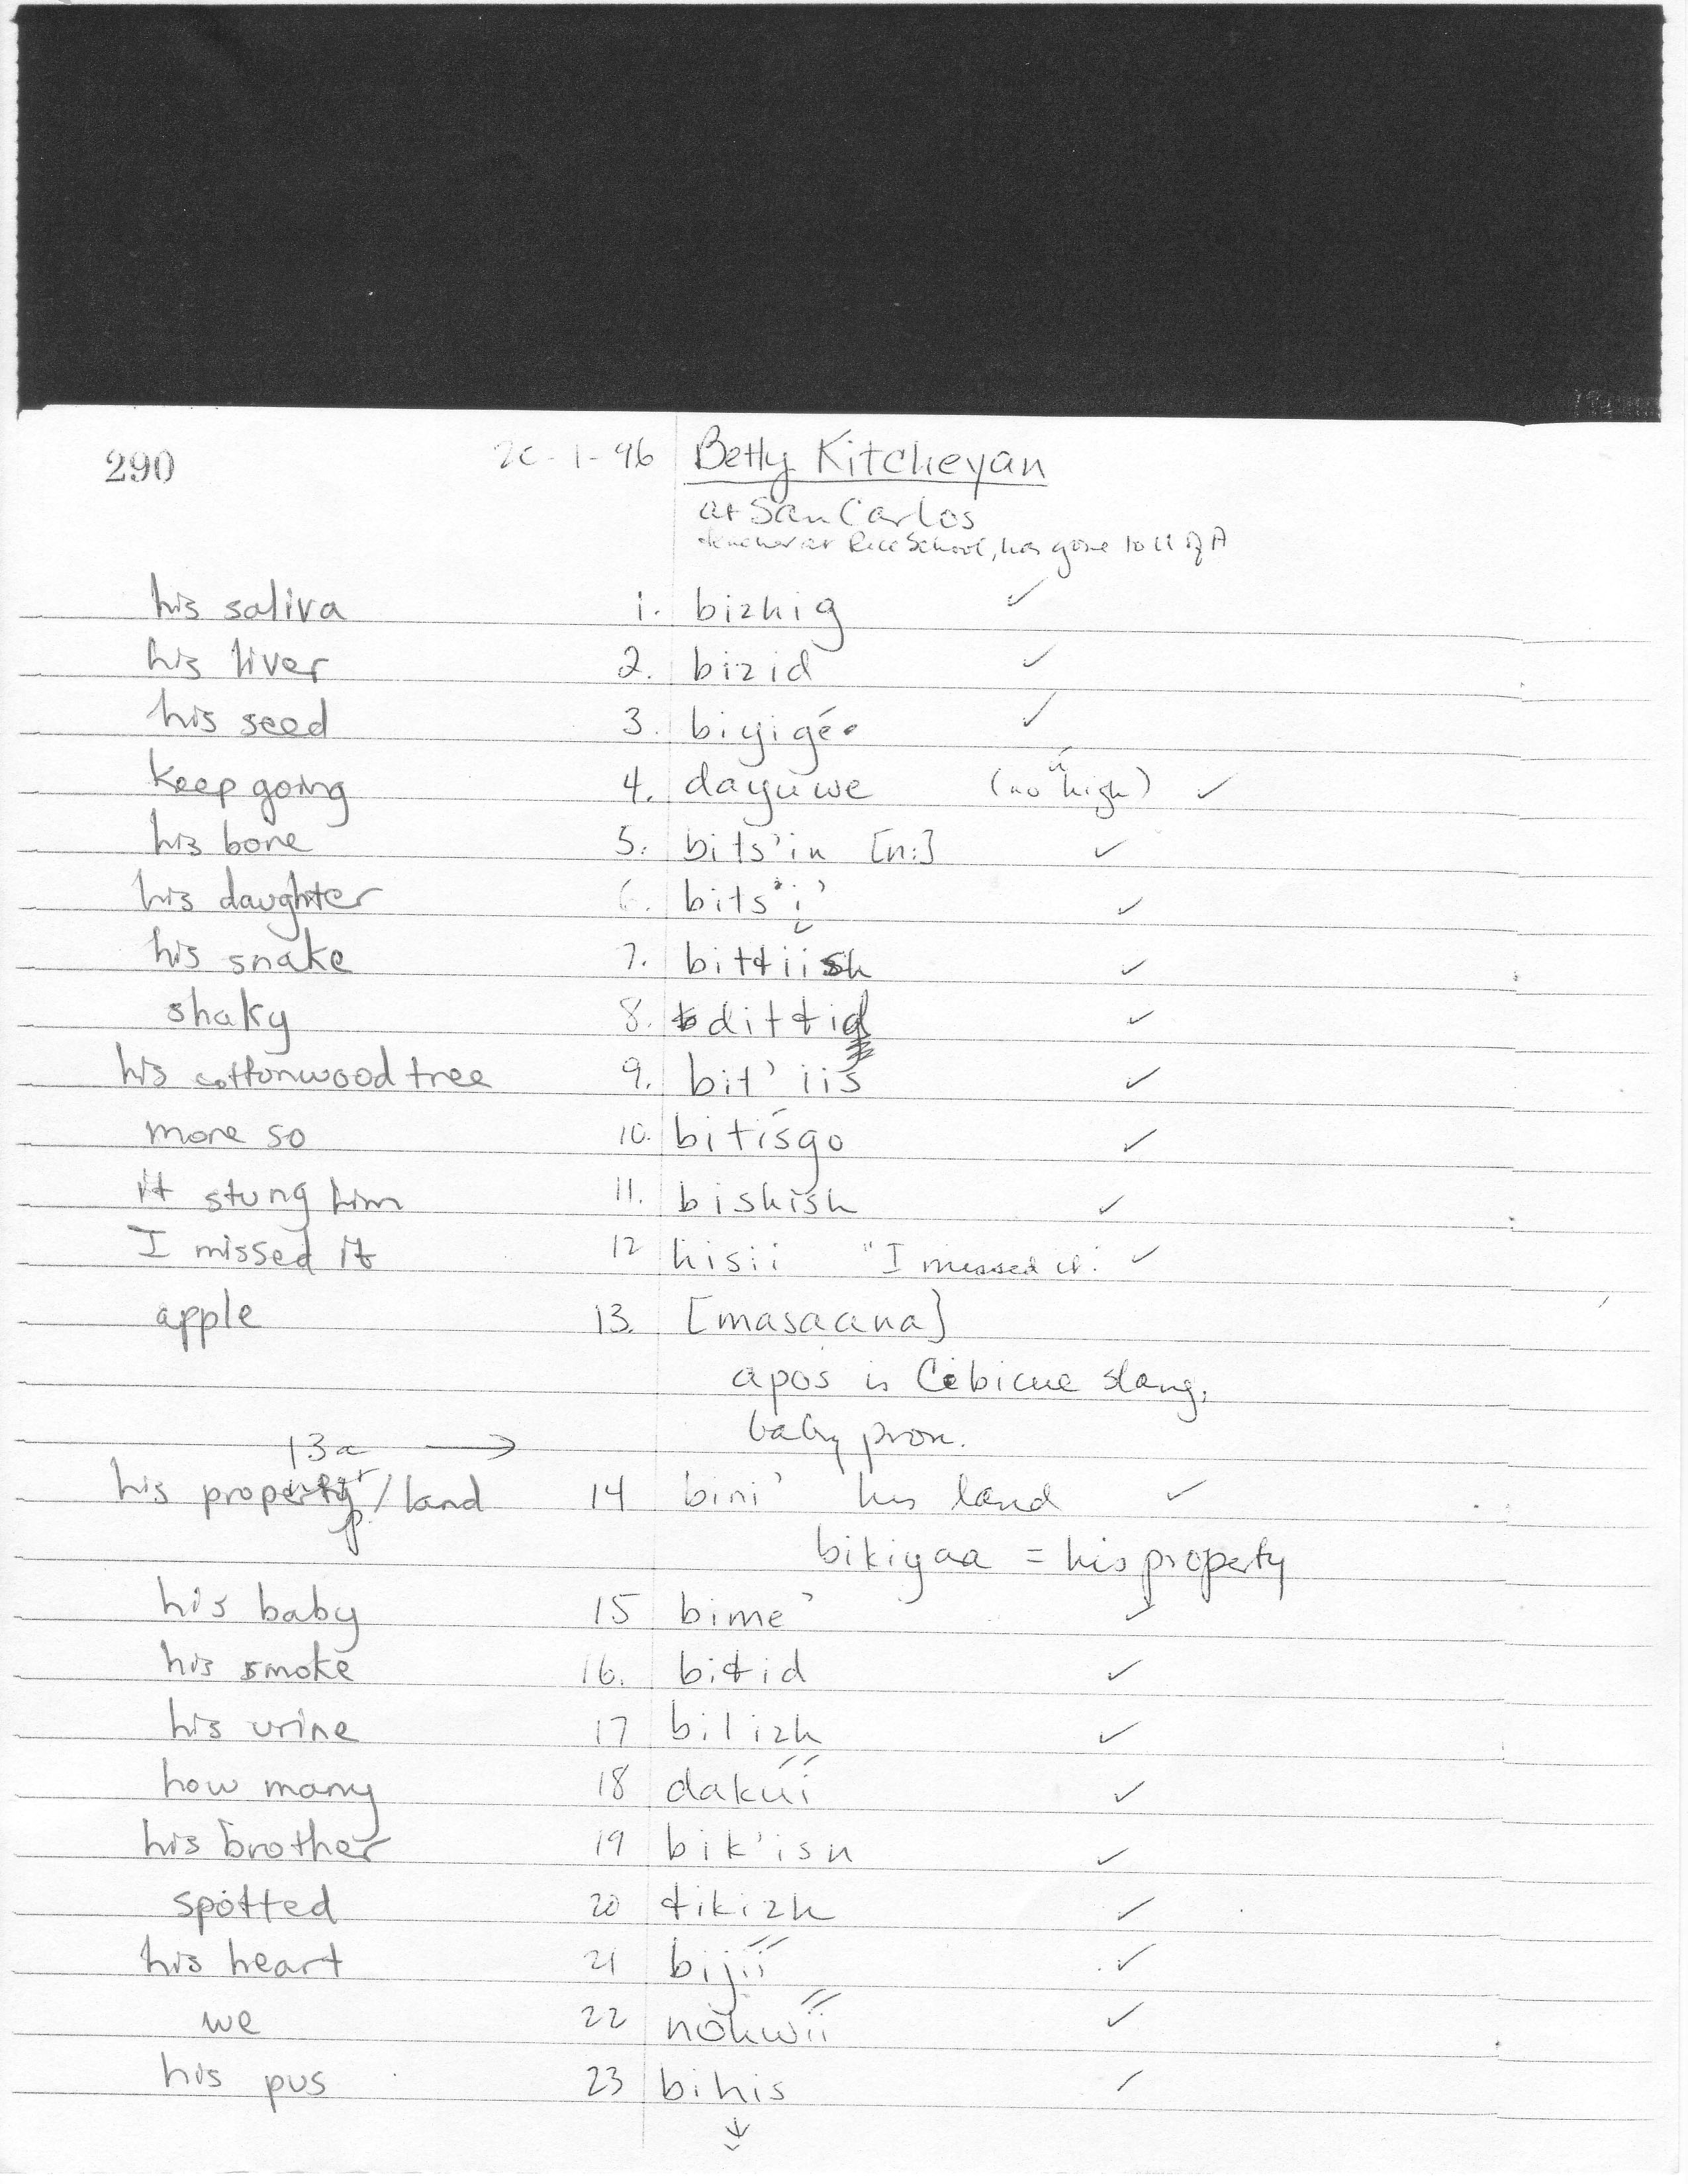 290 20-1-96 Betty Kitcheyan
at San Carlos
teacher at Rice School, has gone to U of A
his saliva 1. bizhig ✓
his liver 2. bizid ✓
his seed 3. biyigé• ✓
keep going 4. dayuwe (no high) ✓
his bone 5. bits'in [n:] ✓
his daughter 6. bits'i' ✓
his snake 7. bitłįįsh ✓
shaky 8. ditłid ✓
his cottonwood tree 9. bit'iis ✓
more so 10. bitísgo ✓
it stung him 11. bishish ✓
I missed it 12 hisii "I missed it." ✓
apple 13. [masaana]
apos is Cibicue slang,
baby pron.
13a →
his property/land 14 bini' his land ✓
bikiyaa = his property
his baby 15 bime' ✓
his smoke 16. biłid ✓
his urine 17 bilizh ✓
how many 18 dakúí ✓
his brother 19 bik'isn ✓
spotted 20 łikizh ✓
his heart 21 bijíí ✓
we 22 nohwíí ✓
his pus 23 bihis ✓
↓